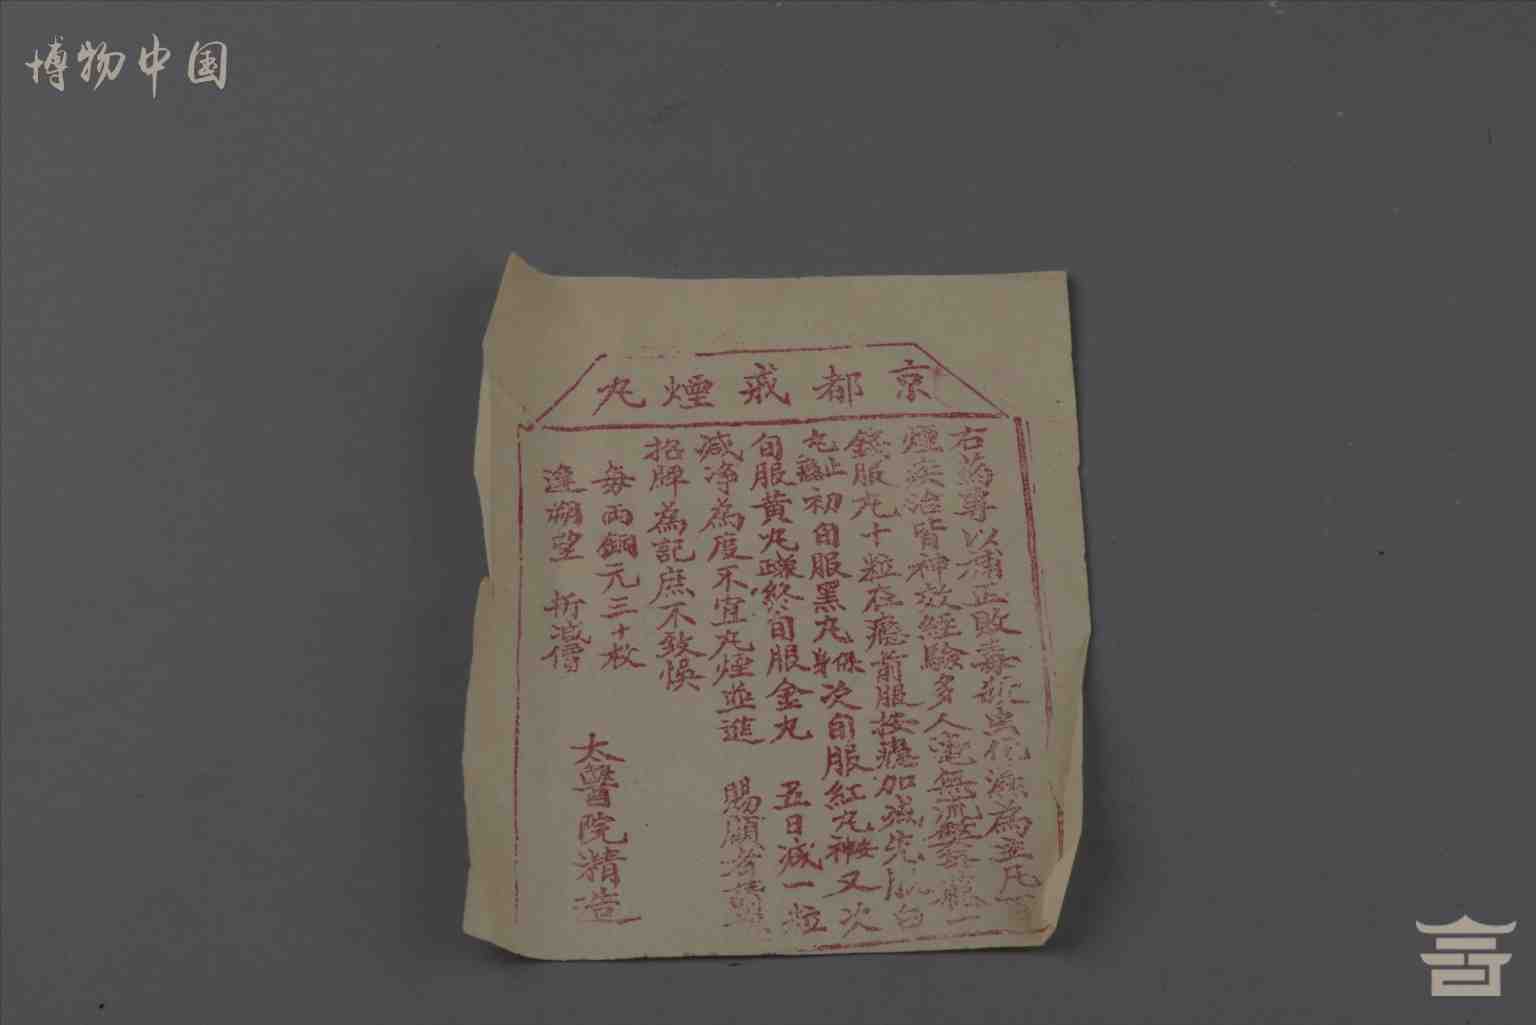 博物中国
京都戒煙丸
右药專以補正敗毒殺虫化涎為主凡
煙疾治皆神效經驗多人毫無流弊癮一
錢服丸十粒在癮前服按癮加減先服白
丸止癮初旬服黑丸保身次旬服紅丸安神又次
旬服黄丸終旬服金丸 五日减一粒
减净為度不宜丸煙並進 賜顧者
招牌為記庶不致悞
每両銅元三十枚
逢朔望 折减價
太醫院精造